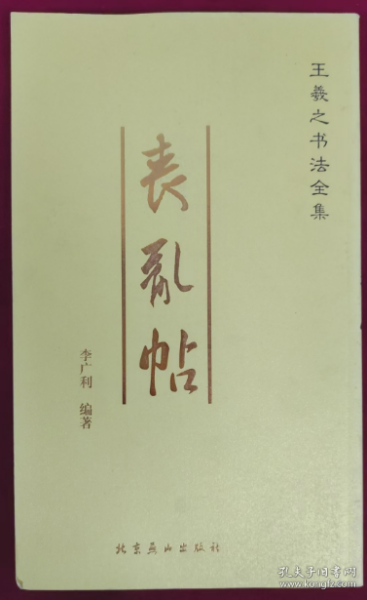 王羲之书法全集
丧乱帖
李广利 编著
北京燕山出版社
孔夫子旧书网